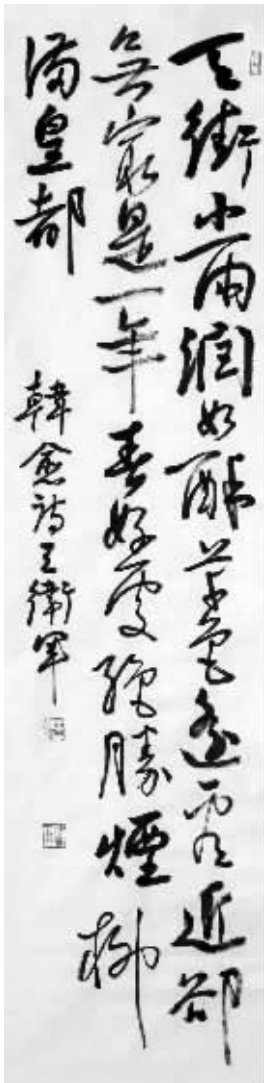 天街小雨潤如酥草色遙看近卻
無最是一年春好處絕勝煙柳
滿皇都
韓愈詩王衛軍